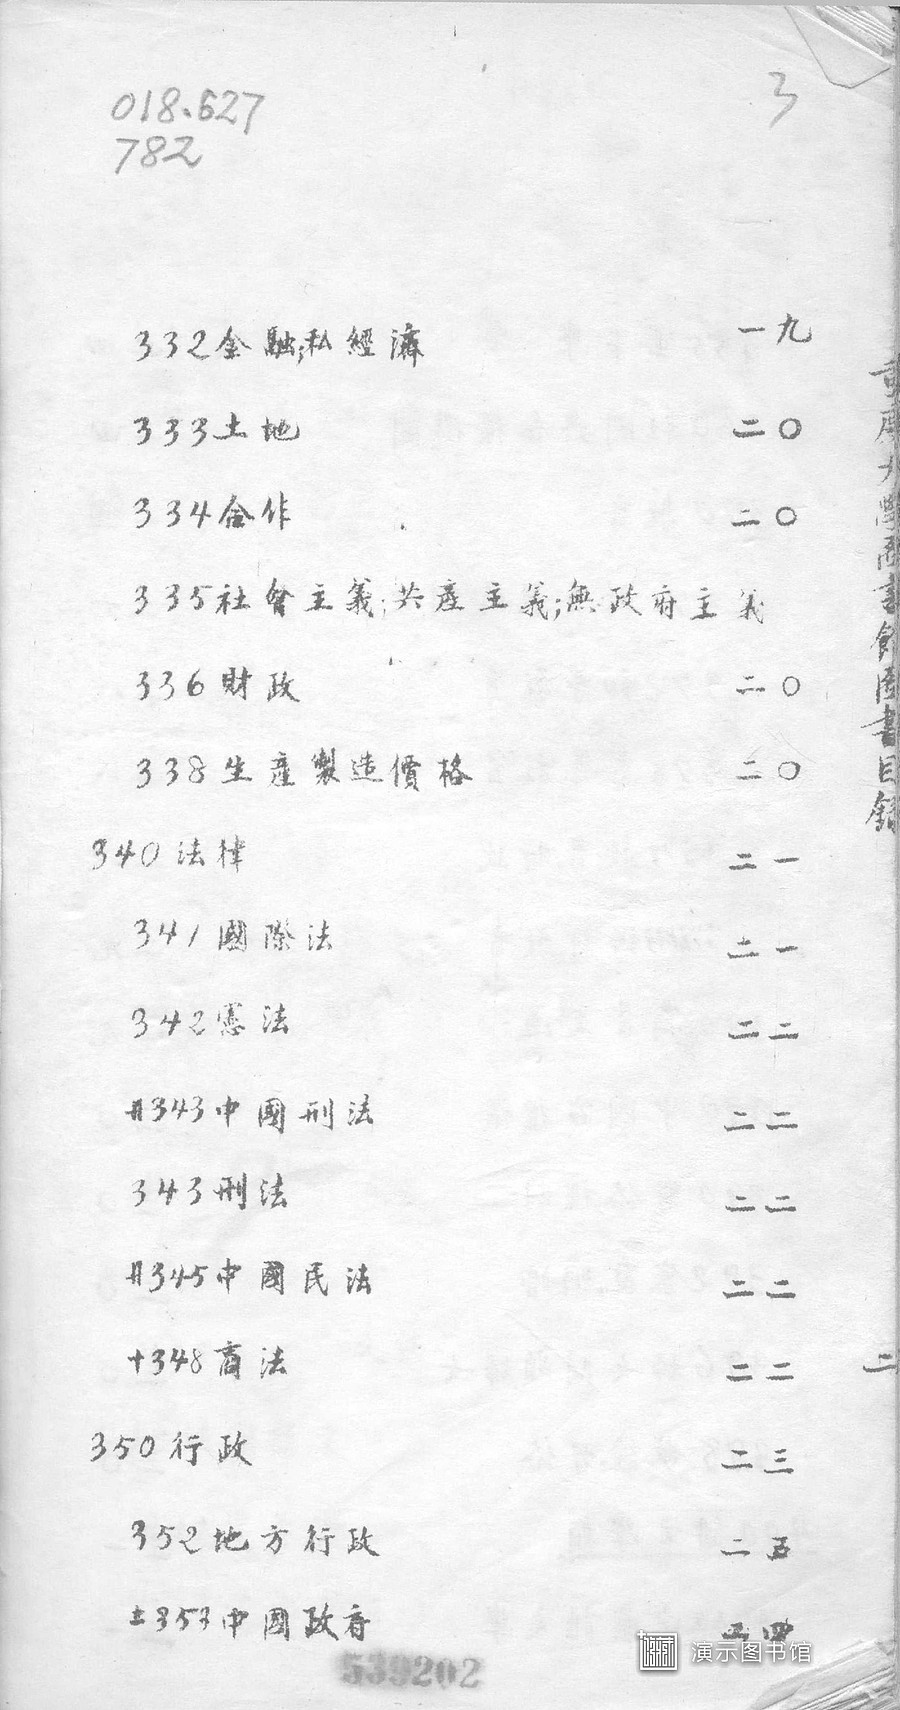 018.627
782
3
332金融;私經濟 一九
333土地 二〇
334合作 二〇
335社會主義;共產主義;無政府主義
336財政 二〇
338生產製造價格 二〇
340法律 二一
341國際法 二一
342憲法 二二
卄343中國刑法 二二
343刑法 二二
卄345中國民法 二二
十348商法 二二
350行政 二三
352地方行政 二五
±353中國政府 二四
重慶大學圖書館圖書目錄
二
539202
演示图书馆